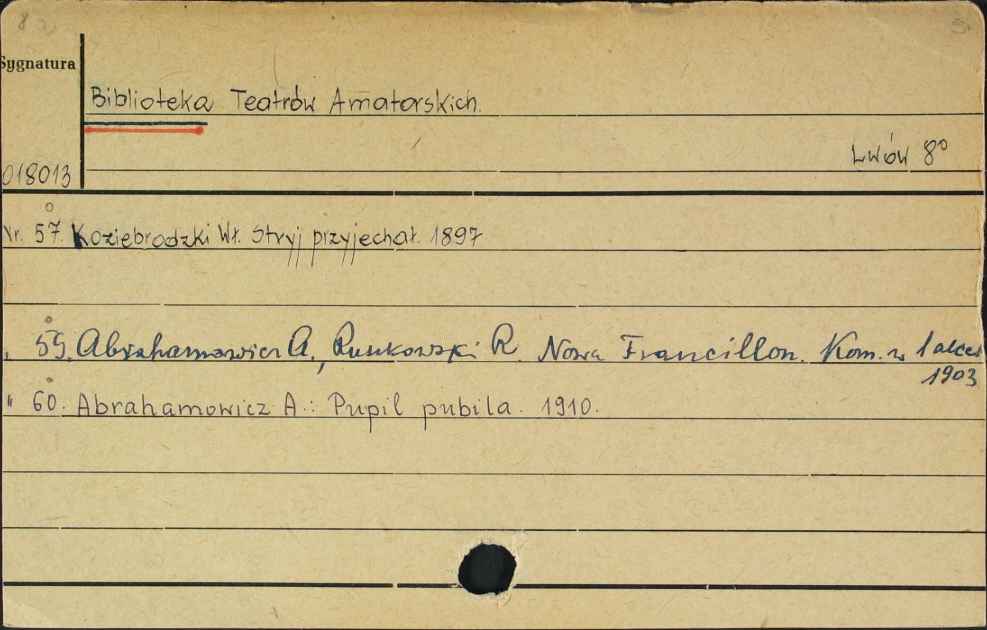 82
Sygnatura
Biblioteka Teatrów Amatorskich.
Lwów 8°
018013
Nr. 57 Koziebrodzki Wł. Stryj przyjechał. 1897
" 59. Abrahamowicz A., Ruszkowski R. Nowa Francillon. Kom. w 1 akcie
1903
" 60. Abrahamowicz A.: Pupil pubila. 1910.